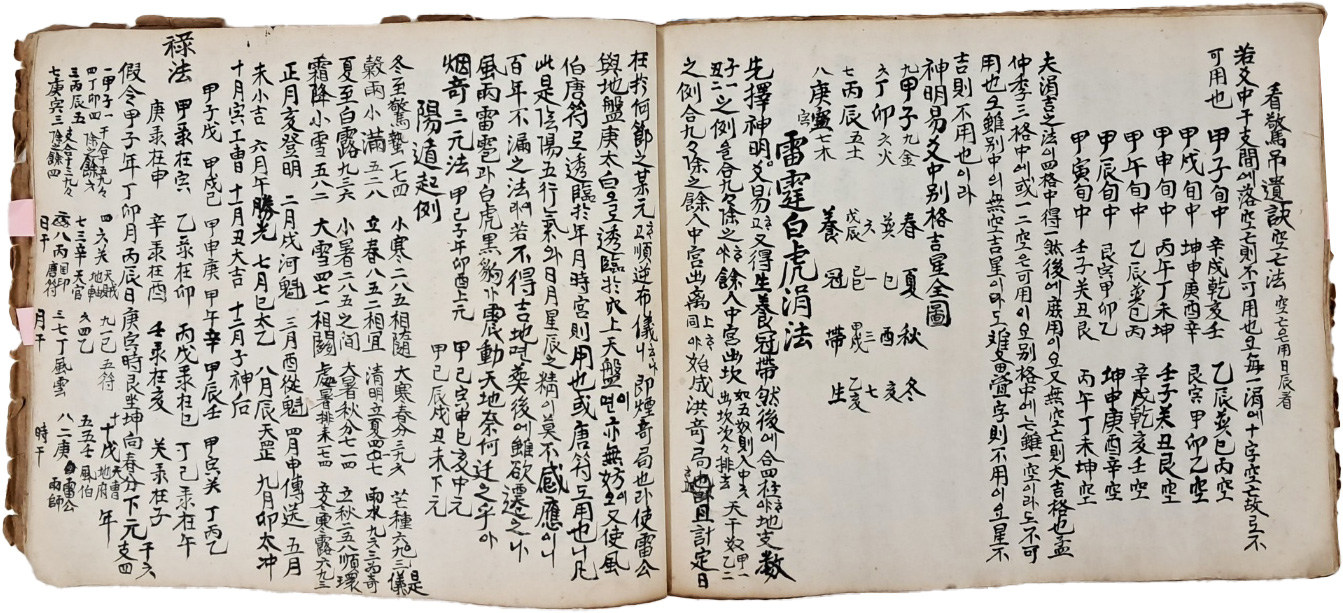 看驚吊遺訣 空亡法 空亡七用日辰者
若爻中干支間에落空亡則不可用也오每一涓에十字空亡故로不
可用也
甲子旬中 辛戌乾亥壬 乙辰並巳丙空
甲戌旬中 坤申庚酉辛 艮寅甲卯乙空
甲申旬中 丙午丁未坤 壬子癸丑艮空
甲午旬中 乙辰並巳丙 辛戌乾亥壬空
甲辰旬中 艮寅甲卯乙 坤申庚酉辛空
甲寅旬中 壬子癸丑艮 丙午丁未坤空
夫涓吉之法이四格中得一然後에廣用이오又無空亡則大吉格也盖
仲季三格中에或一二空은可用이오別格中에亡雖一空이라도不可
用也오雖別中의無空吉星이라도疊字則不用이오星不
吉則不用也이라
神明易爻中別格吉星全圖
九甲子九金 春 夏 秋 冬
六丁卯六火 癸 巳 酉 亥
七丙辰五土 戊辰 六 己巳 一 甲戌 三 乙亥 七
八庚寅七木 養 冠 帶 生
雷霆白虎涓法
先擇神明爻易고又得生養冠帶然後에合四柱야地支數
子一丑二之例色合九々除之야餘入中宮出坎 如五数則入中六出坎次々排去 天干数甲一乙二
之例合九々除之餘入中宮出离上야同야始成洪奇局也且計定日
在於何節之某元고順逆布儀니即煙奇局也라使雷公
與地盤庚太白으로透臨於穴上天盤이면亦無妨이오又使風
伯唐符로透臨於年月時宮則用也或唐符互用也니凡
此是陰陽五行氣와日月星辰之精이莫不感應이니
百年不漏之法야若不得吉地면葬後에雖欲遷之나
風雨雷雹과白虎黑豹가震動天地奈何迁之乎아
烟奇三元法 甲己子午卯酉上元 甲己寅申巳亥中元 甲己辰戌丑未下元
陽遁起例
冬至驚蟄一七四 小寒二八五相隨 大寒春分三九六 芒種六九三是儀
穀雨小滿五二八 立春八五二相宜 清明立夏四一七 雨水九六三為奇
夏至白露九三六 小暑二八五之间 大暑秋分七一四 立秋二五八順環
霜降小雪五八二 大雪四七一相関 處暑排来一四七 立冬寒露六九三
正月亥登明 二月戌河魁 三月酉從魁 四月申傳送 五月
未小吉 六月午勝光 七月巳太乙 八月辰天罡 九月卯太冲
十月寅工曺 十一月丑大吉 十二月子神后
甲子戊 甲戌己 甲申庚 甲午辛 甲辰壬 甲寅癸 丁丙乙
祿法 甲彔在寅 乙彔在卯 丙戊彔在巳 丁己彔在午
庚彔在申 辛彔在酉 壬彔在亥 癸彔在子
假令甲子年丁卯月丙辰日庚寅時艮坐坤向春分下元 干六支四
一甲子一 干合十五九々除之餘六 四六癸 天賊地軸 九一己五符 十一戊 天曺地府 年
四丁卯四 支合十三九々除之餘四 七三辛天官 六四乙 五五壬風伯
三丙辰五 八丙目卯唐符 三七丁風雲 八二庚白雷公雨師
七庚寅三 日干 月干 時干